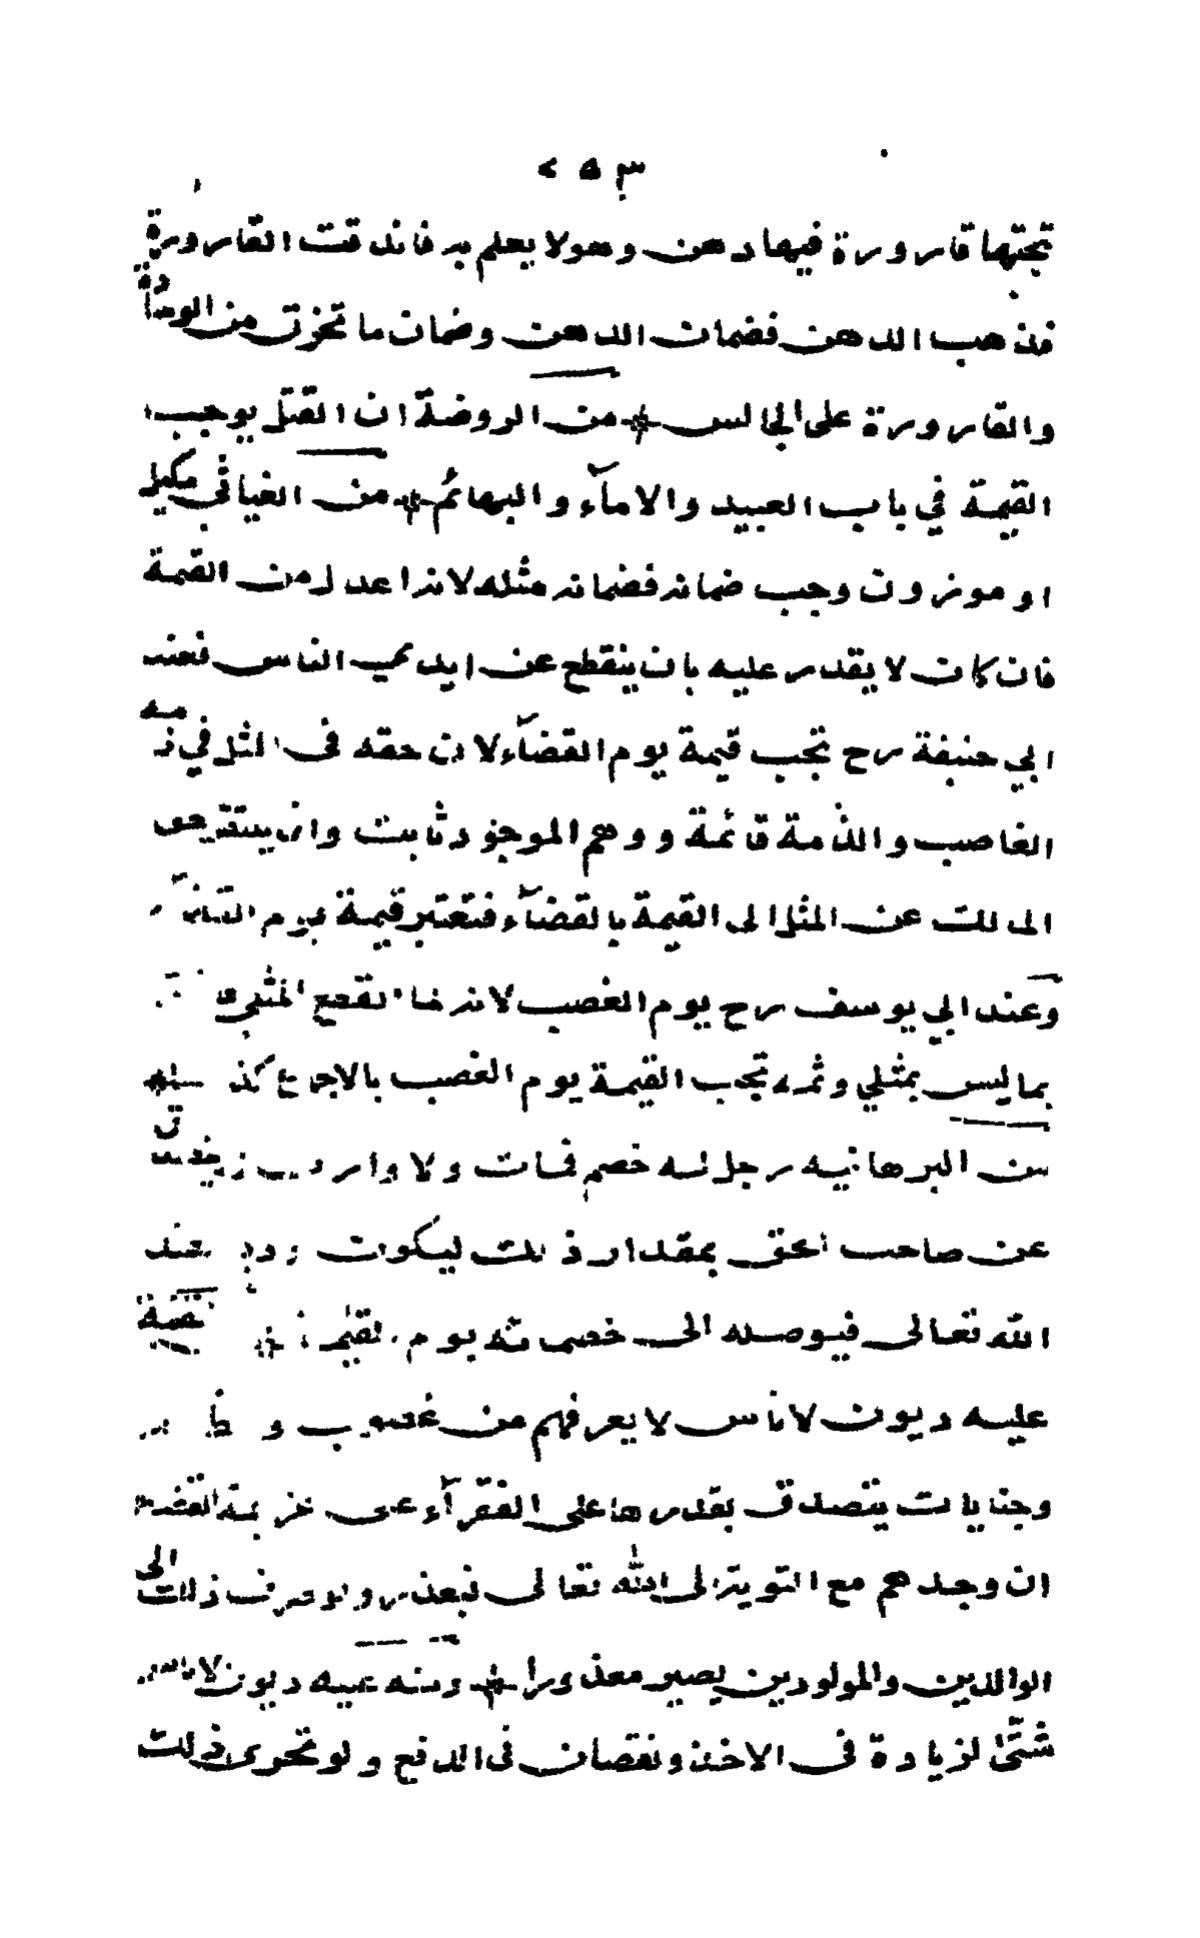 ٢٥٣
تحتها قارورة فيها دهن وهو لا يعلم به فاندقت القارورة
فذهب الدهن فضمان الدهن وضمان ما تخرق من الوسادة
والقارورة على الجالس * من الروضة ان القتل يوجب
القيمة في باب العبيد والامآء والبهائم * من الغياثي مكيل
او موزون وجب ضمانه فضمانه مثله لانه اعدل من القيمة
فان كان لا يقدر عليه بان ينقطع عن ايدي الناس فعند
ابي حنيفة رح تجب قيمة يوم القضآء لان حقه في المثل في ذمه
الغاصب والذمة قائمة ووهم الموجود ثابت وان
الى عن المثل الى القيمة بالقضآء فتعتبر قيمة يوم القضآء
وعند ابي يوسف رح يوم الغصب لانه لما انقطع المثلي
بما ليس بمثلي وثمه تجب القيمة يوم الغصب بالاجماع *
من البرهانيه رجل له خصم فمات ولا وارث
عن صاحب الحق بمقدار ذلك ليكون عند
الله تعالى فيوصله الى خصمائه يوم القيمة *
عليه ديون لاناس لا يعرفهم من غصوب و
وجنايات يتصدق بقدرها على الفقرآء على عزيمة القضاء
ان وجدهم مع التوبة الى الله تعالى فيعذر ولو صرف ذلك الى
الوالدين والمولودين يصير معذورا * ومنه عليه ديون لاناس
شتى لزيادة في الاخذ ونقصان في الدفع ولو تحرى ذلك